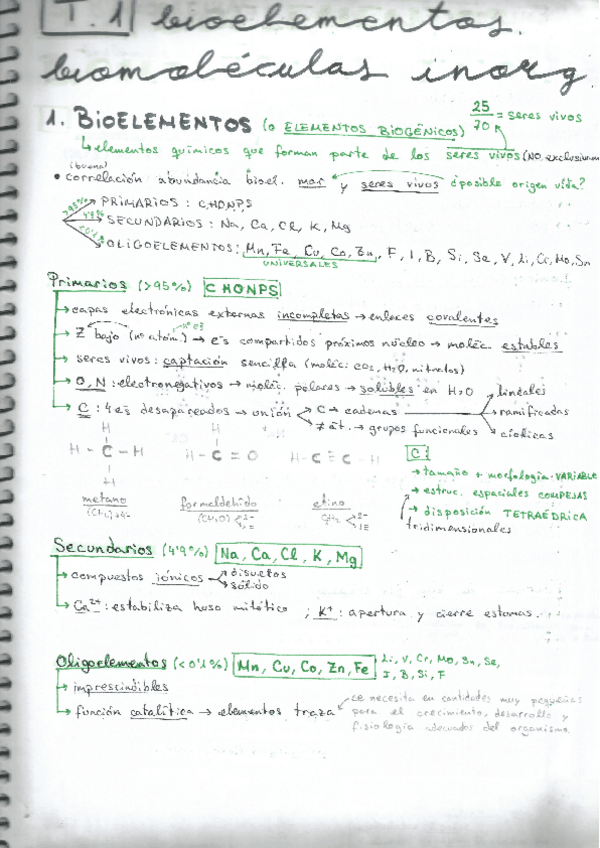 T.1 bioelementos.
biomoléculas inorg.
1. BIOELEMENTOS (o ELEMENTOS BIOGÉNICOS) 25/70 = seres vivos
↳ elementos químicos que forman parte de los seres vivos (NO
(buena)
• correlación abundancia bioel. mar y seres vivos ¿posible origen vida?
>95% PRIMARIOS: CHONPS
4'9% SECUNDARIOS: Na, Ca, Cl, K, Mg
<0'1% OLIGOELEMENTOS: Mn, Fe, Cu, Co, Zn, F, I, B, Si, Se, V, Li, Cr, Mo, Sn
UNIVERSALES
Primarios (>95%) CHONPS
→ capas electrónicas externas incompletas → enlaces covalentes
→ Z bajo (nº atóm.) → e⁻s compartidos próximos núcleo → moléc. estables
→ seres vivos: captación sencilla (moléc: CO₂, H₂O, nitratos)
→ O, N: electronegativos → moléc. polares → solubles en H₂O
→ C: 4 e⁻s desapareados → unión
C → cadenas
≠ át. → grupos funcionales
→ lineales
→ ramificadas
→ cíclicas
H H
H - C - H H - C = O H - C ≡ C - H
H
C
→ tamaño + morfología VARIABLE
→ estruc. espaciales COMPEJAS
→ disposición TETRAÉDRICA
tridimensionales
metano formeldehido etino
Secundarios (4'9%) Na, Ca, Cl, K, Mg
→ compuestos iónicos
→ disueltos
→ sólido
→ Ca²⁺: estabiliza huso mitótico ; K⁺: apertura y cierre estomas.
Oligoelementos (<0'1%) Mn, Cu, Co, Zn, Fe Li, V, Cr, Mo, Sn, Se,
I, B, Si, F
→ imprescindibles
→ función catalítica → elementos traza
se necesita en cantidades muy pequeñas
para el crecimiento, desarrollo y
fisiología adecuados del organismo.